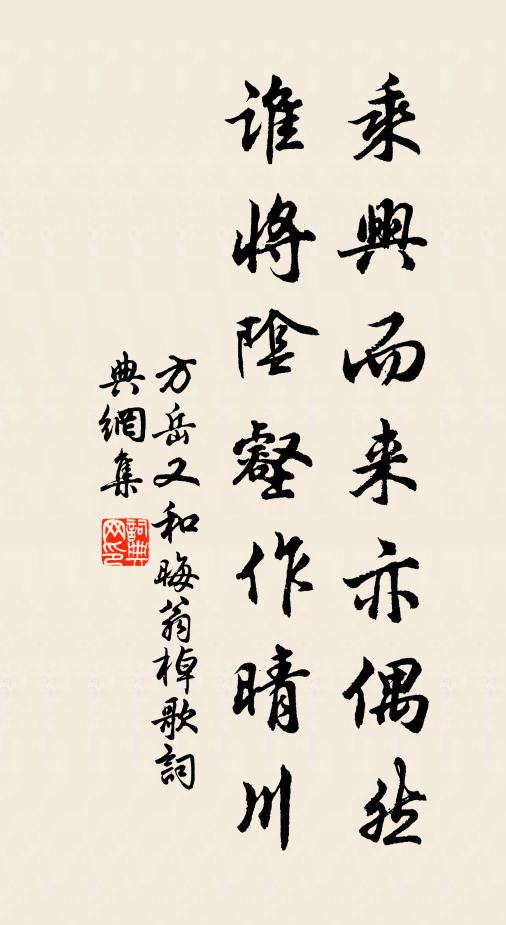 乘興而来亦偶然
誰將陰壑作晴川
方岳又和晦翁棹歌詞
典網集
詞典網印